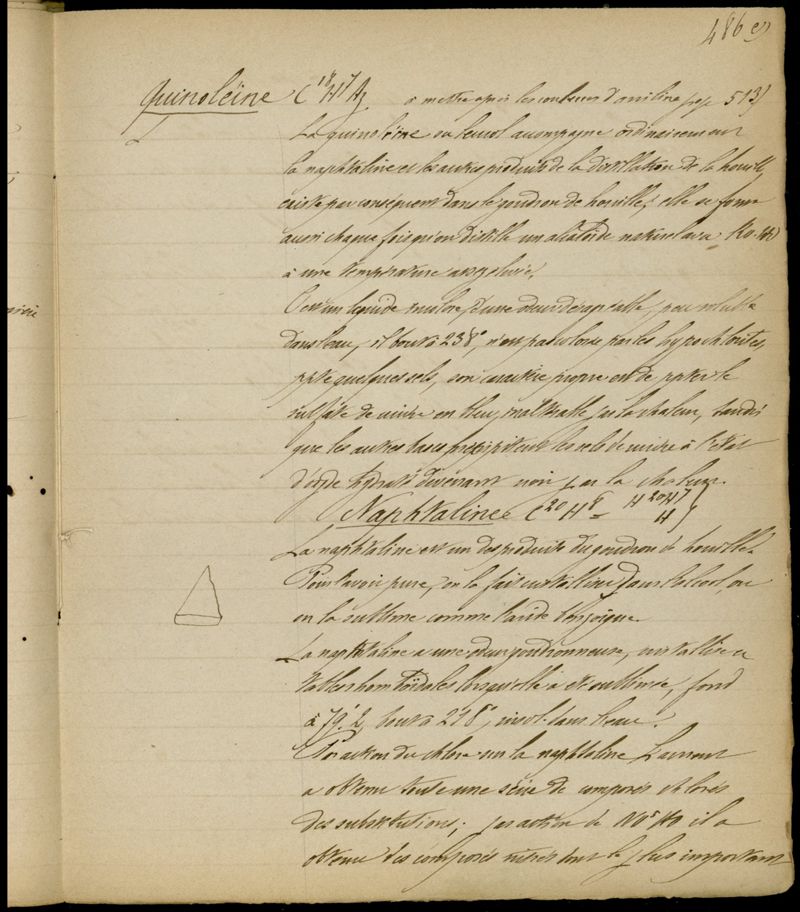 486 e)
Quinoléine C18H7Az à mettre après les couleurs d'aniline page 513)
La quinoléine ou leucol accompagne ordinairement
la naphtaline et les autres produits de la distillation de la houille,
existe par conséquent dans le goudron de houille; elle se forme
aussi chaque fois qu'on distille un alcaloïde naturel avec Ko.Ho
à une température assez élevée.
C'est un liquide incolore, d'une odeur désagréable, peu soluble
dans l'eau, il bout à 238°, n'est pas coloré par les hypochlorites,
ppite quelques sels, son caractère propre est de ppiter le
sulfate de cuivre en bleu, inaltérable par la chaleur, tandis
que les autres bases précipitent les sels de cuivre à l'état
d'oxyde hydraté devenant noir par la chaleur.
Naphtaline C20H8 = H20H7 H }
La naphtaline est un des produits du goudron de houille.
Pour l'avoir pure, on la fait cristalliser dans l'alcool, ou
on la sublime comme l'acide benzoïque.
La naphtaline a une odeur goudronneuse, cristallise en
tables rhomboïdales lorsqu'elle a été sublimée, fond
à 79°,2, bout à 218°, insol. dans l'eau.
Par action du chlore sur la naphtaline Laurent
a obtenu toute une série de composés chlorés
des substitutions; par action de No5Ho il a
obtenu des composés nitrés dont le plus important